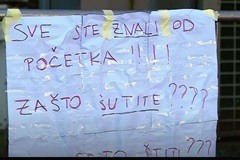 SVE STE ZNALI OD
POČETKA !!!!
ZAŠTO ŠUTITE ????